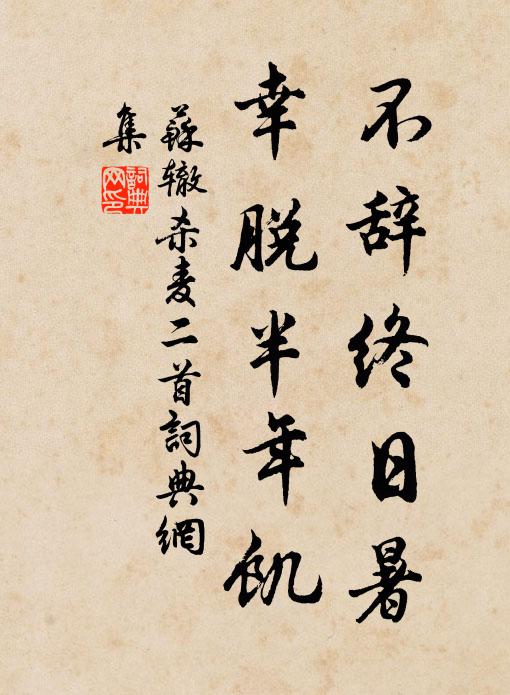 不辞终日暑
幸脱半年饥
苏辙杀麦二首詞典網
集
詞典网印